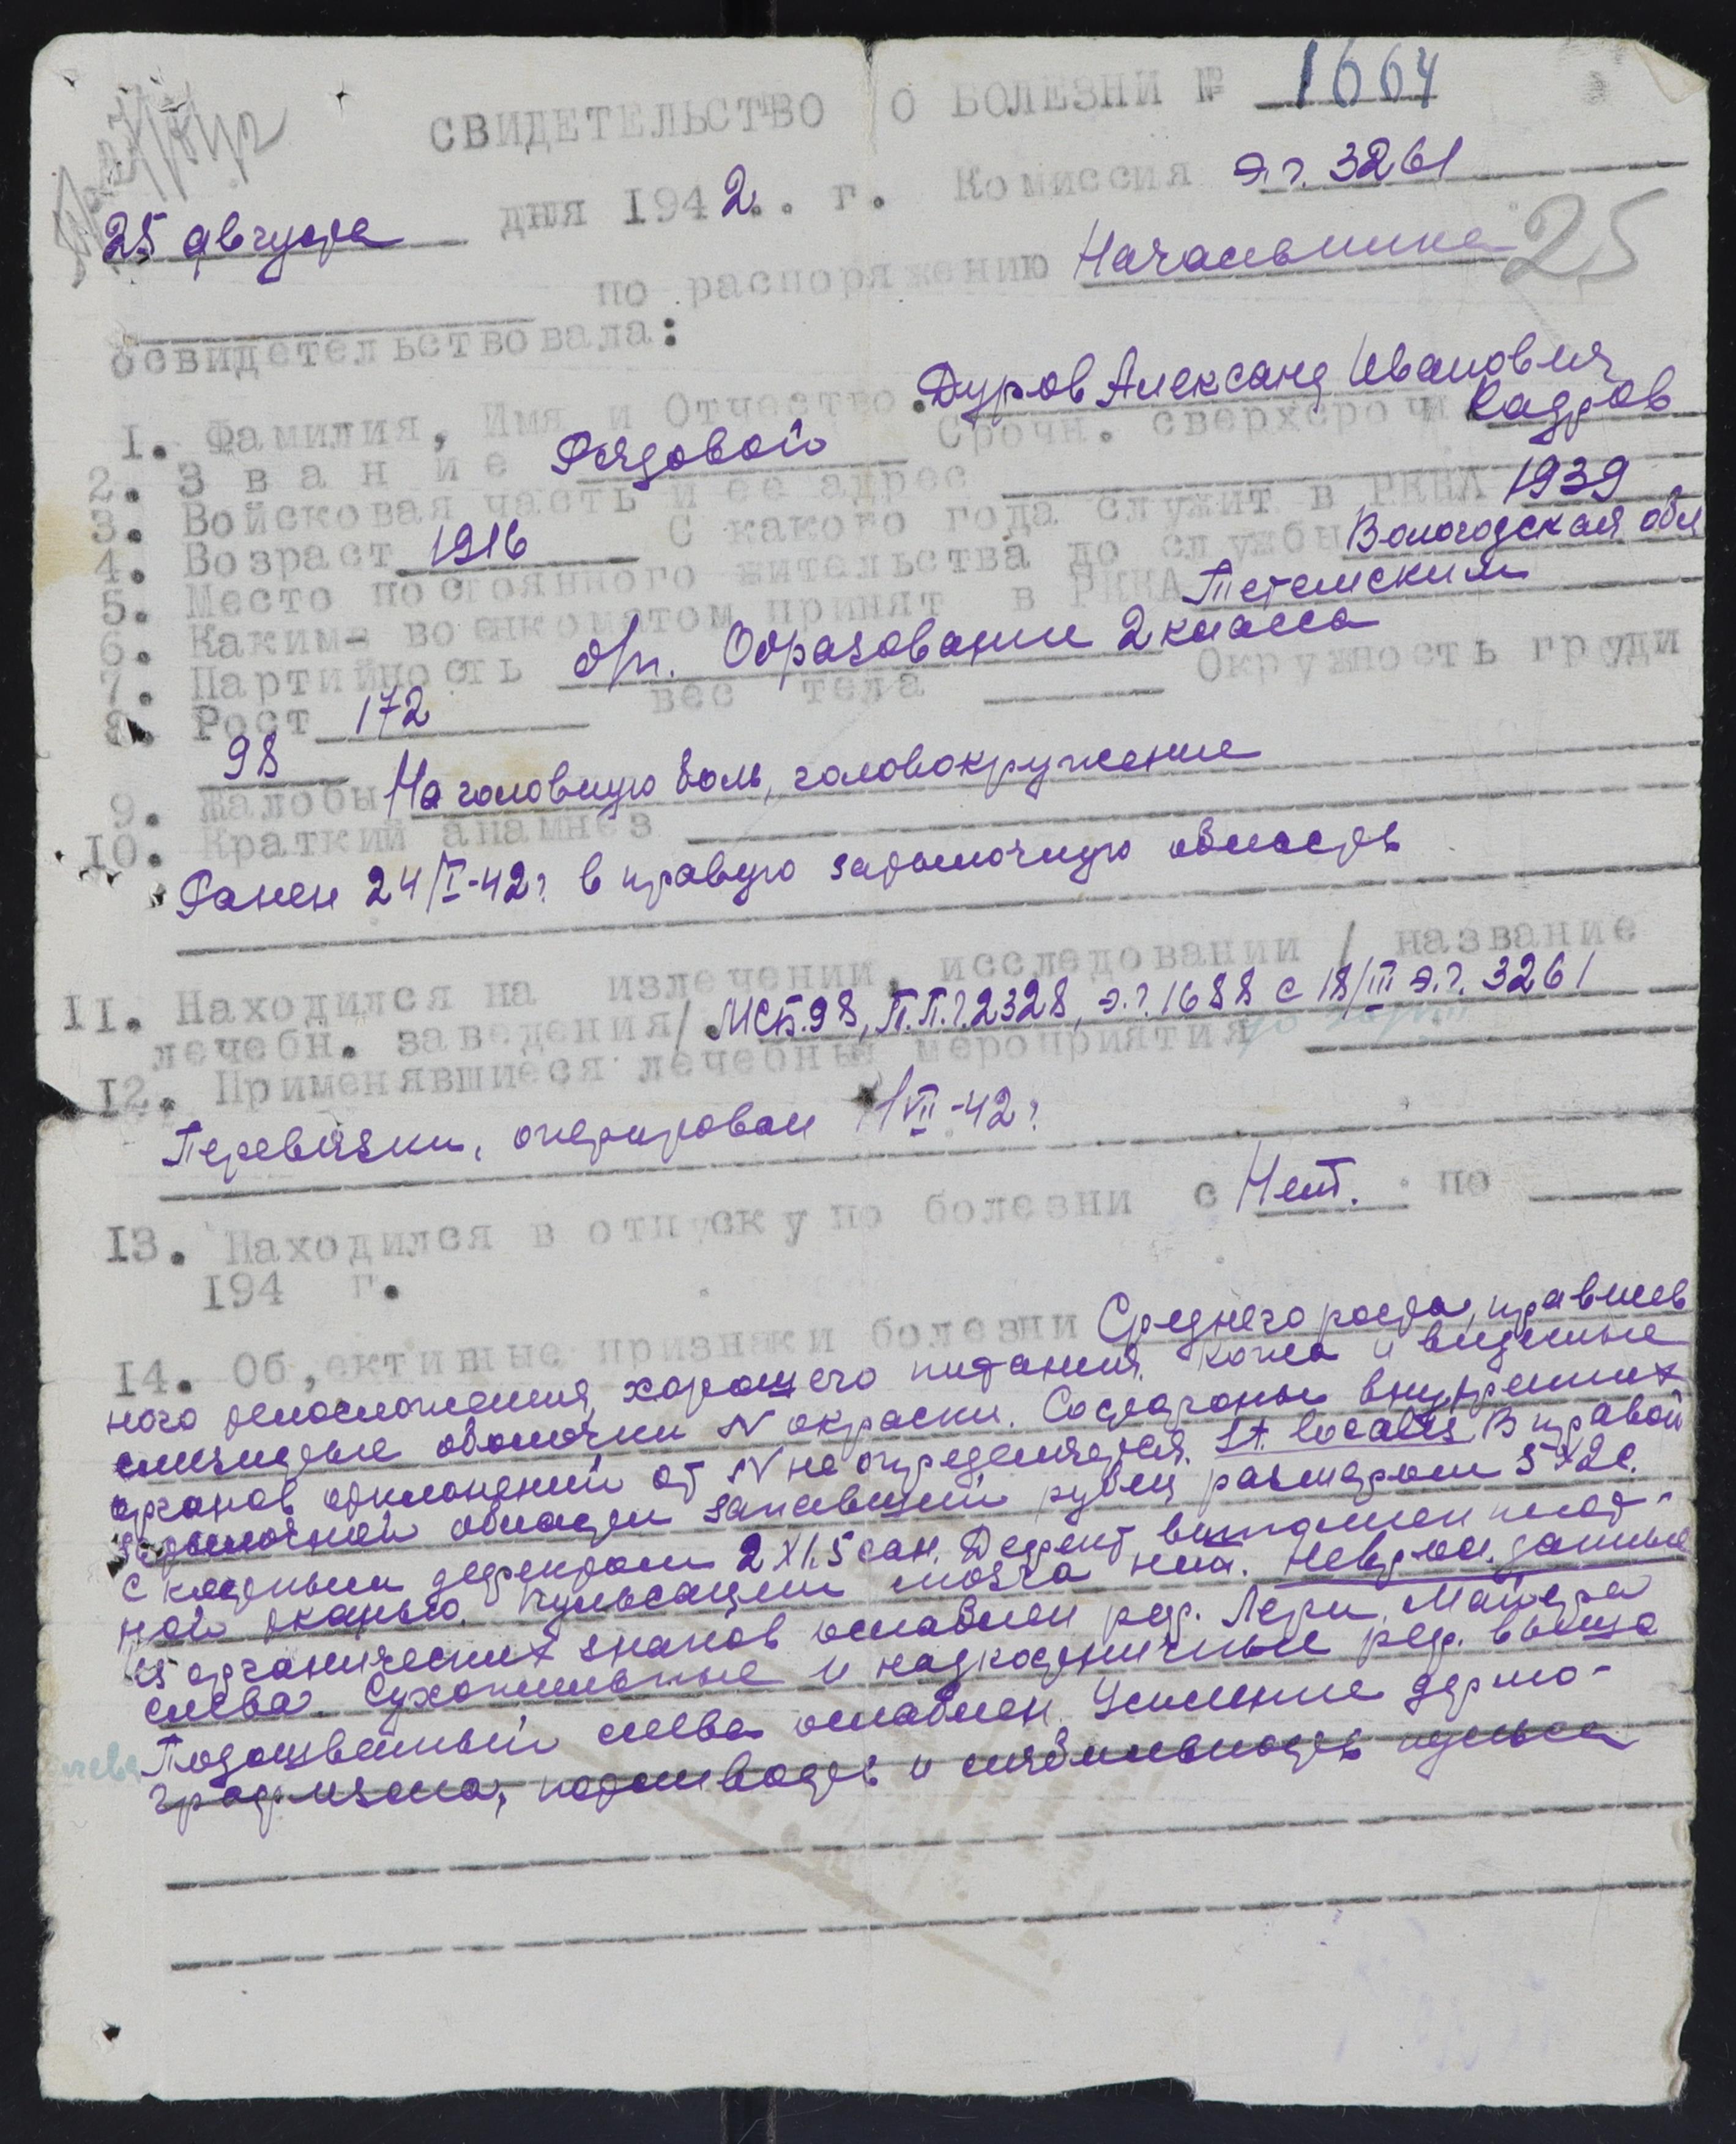 СВИДЕТЕЛЬСТВО О БОЛЕЗНИ № 1664
25 августа дня 1942.. г. Комиссия э.г. 3261
по распоряжению Начальника 25
освидетельствовала:
1. Фамилия, Имя и Отчество. Дуров Александ Иванович
2. З в а н и е Рядовой Срочн. сверхсрочн Кадров
3. Войсковая часть и ее адрес
4. Возраст 1916 С какого года служит в РККА 1939
5. Место постоянного жительства до службы Вологодская обл
6. Каким военкоматом принят в РККА Тотемским
7. Партийность б/п. Образование 2 класса
8. Рост 172 вес тела Окружность груди
98
9. Жалобы На головную боль, головокружение
10. Краткий анамнез
Ранен 24/I-42г в правую затылочную область
11. Находился на излечении, исследовании / название
лечебн. заведения/ МСБ.98, П.П.Г.2328, э.г.1688 с 18/III э.г. 3261
12. Применявшиеся лечебные мероприятия
Перевязки, оперирован 1/VII-42г
13. Находился в отпуску по болезни с Нет. по
194 г.
14. Об,ективные признаки болезни Среднего роста, правиль
ного телосложения, хорошего питания. Кожа и видимые
слизистые оболочки N окраски. Со стороны внутренних
органов отклонений от N не определяется. St. localis В правой
затылочной области запавший рубец размером 5х2с.
с костным дефектом 2х1,5 сан. Дефект выполнен плот-
ной тканью. Пульсации мозга нет. Невролог. данные
Из органических знаков ослаблен реф. Лери, Майера
слева. Сухожильные и надкостничные реф. выше
Подошвенный слева ослаблен. Усиление дермо-
графизма, потливость и лябильность пульса